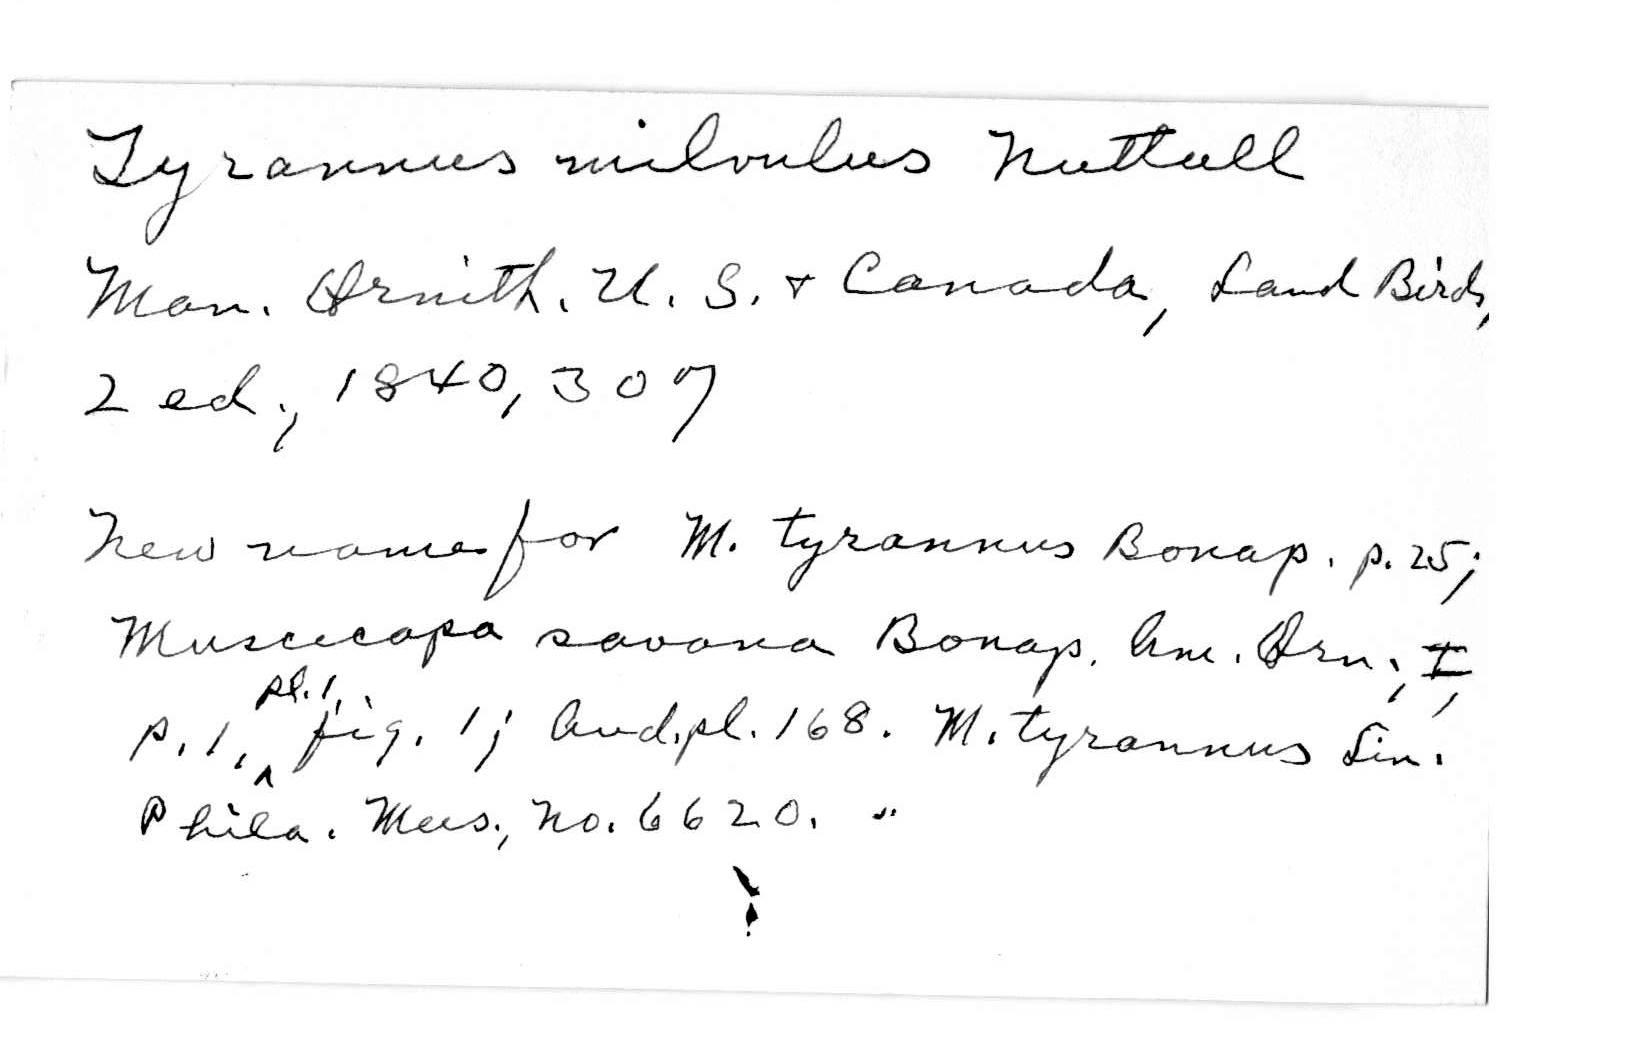 Tyrannus milvulus Nuttall
Man. Ornith. U. S. + Canada, Land Birds,
2 ed., 1840, 307
New name for M. tyrannus Bonap. p. 25;
Muscicapa savana Bonap. Am. Orn., I,
p. 1, pl. 1, fig. 1; Aud. pl. 168. M. tyrannus Lin.
Phila. Mus., No. 6620. "